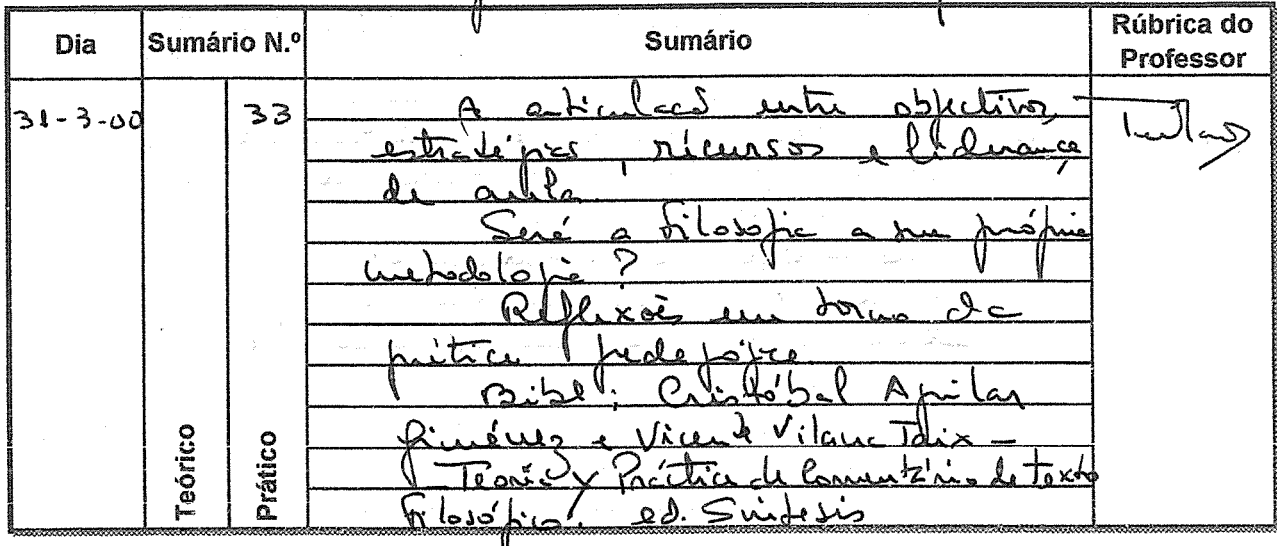 Dia Sumário N.º Sumário Rúbrica do Professor
31-3-00 33 A articulação entre objectivos,
estratégias, recursos e liderança
de aula.
Será a Filosofia a sua própria
metodologia?
Reflexões em torno da
prática pedagógica
Bibl: Cristóbal Aguilar
Giménez e Vicente Vilana Taix –
Teoría y Práctica de Comentário de Texto
Filosófico, ed. Sintesis
Teórico
Prático